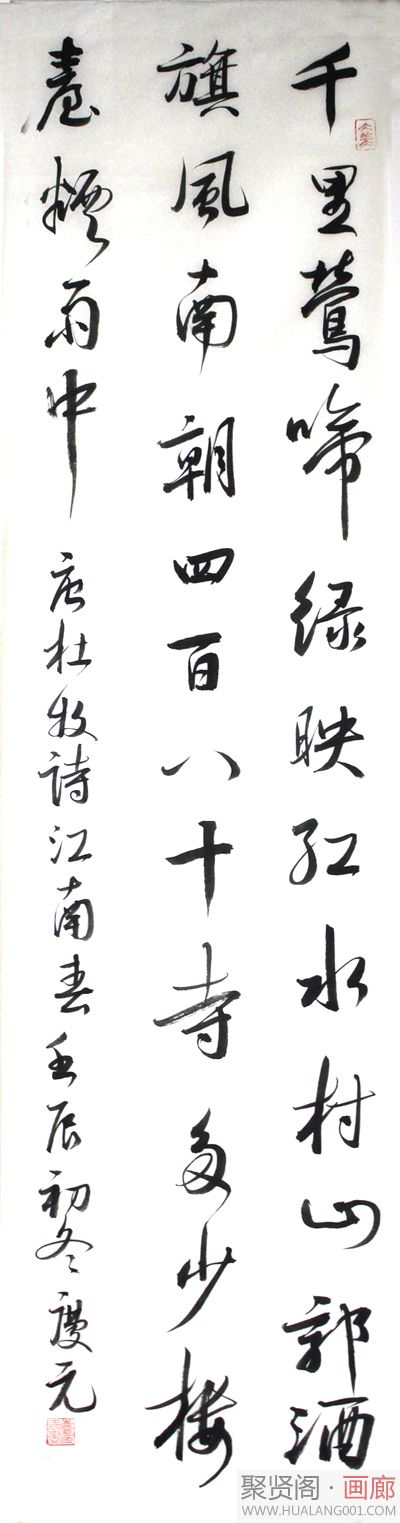 千里鶯啼绿映红水村山郭酒
旗風南朝四百八十寺多少楼
臺煙雨中 唐杜牧詩江南春壬辰初冬慶元
聚贤阁·画廊
WWW.HUALANG001.COM